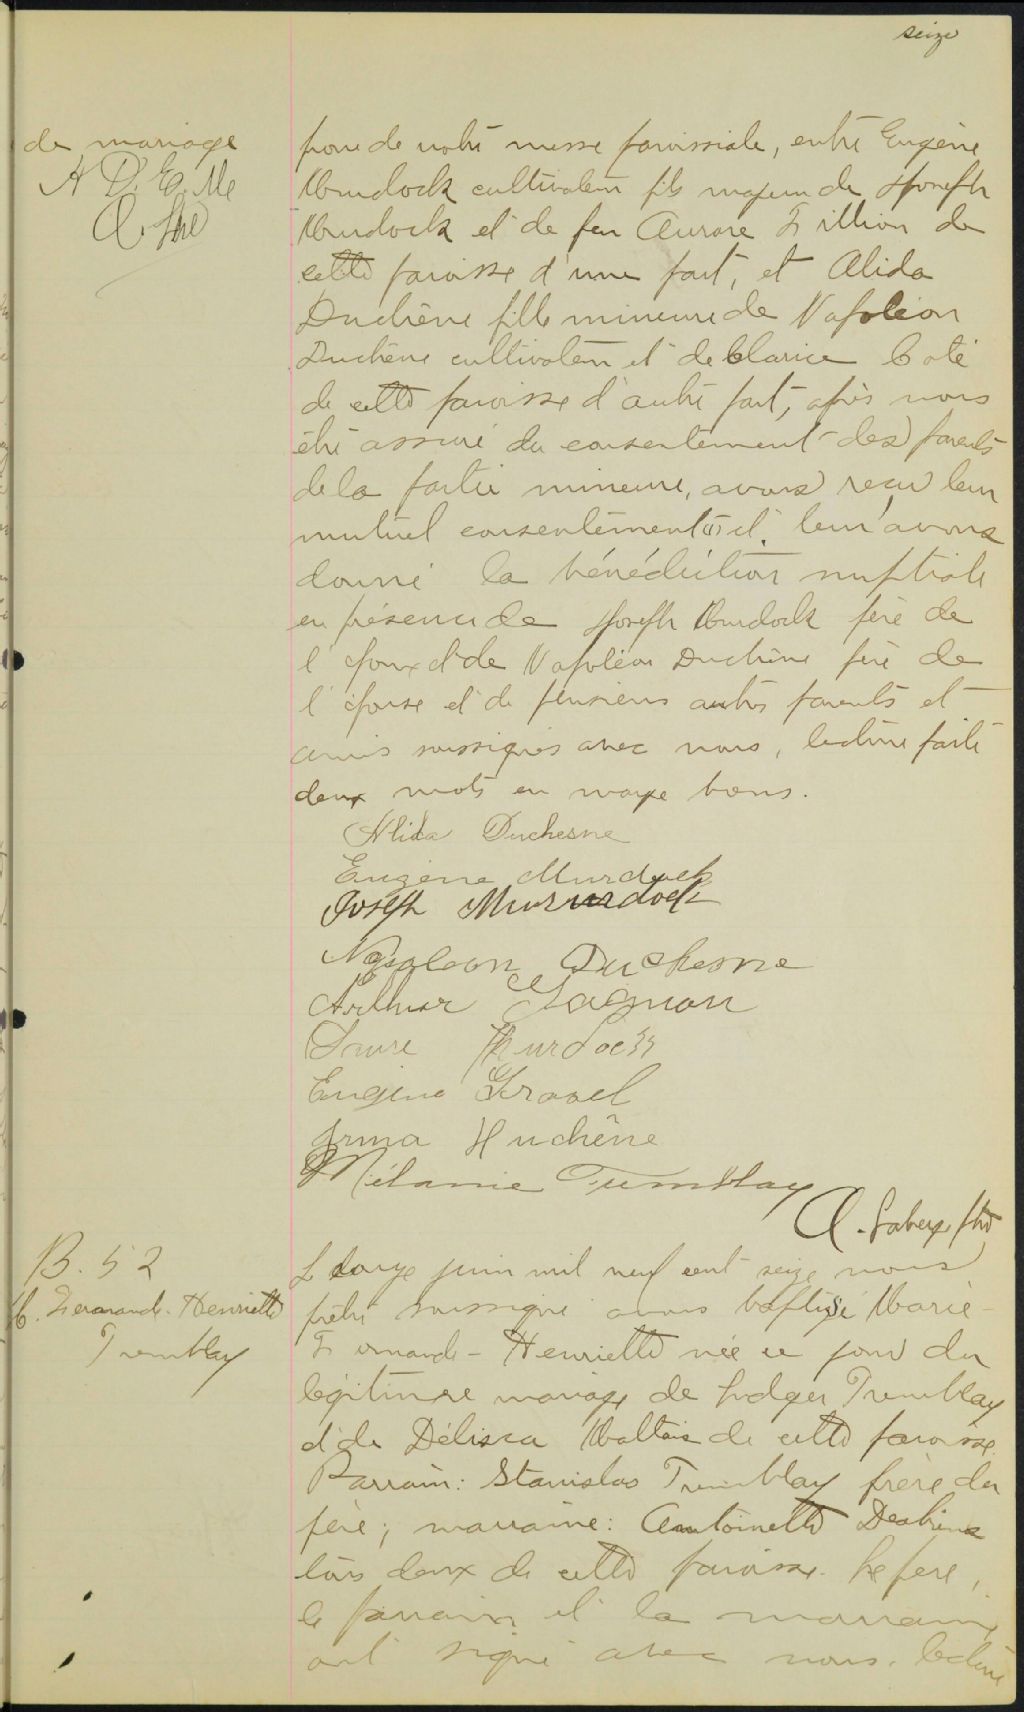 seize
de mariage
A D. E. M
prone de notre messe paroissiale, entre Eugène
Murdock cultivateur fils majeur de Joseph
Murdock et de feu Aurore Fillion de
cette paroisse d'une part, et Alida
Duchêne fille mineure de Napoléon
Duchêne cultivateur et de Clarice Coté
de cette paroisse d'autre part, après nous
être assuré du consentement des parents
de la partie mineure, avons reçu leur
mutuel consentement et leur avons
donné la bénédiction nuptiale
en présence de Joseph Murdock père de
l'époux et de Napoléon Duchêne père de
l'épouse et de plusieurs autres parents et
amis soussignés avec nous, lecture faite
deux mots en marge bons.
Alida Duchesne
Eugène Murdock
Joseph Murdock
Napoleon Duchesne
Arthur Gagnon
Laure Murdock
Eugène Gravel
Irma Duchêne
Mélanie Tremblay
A. Laberge ptre
B. 52
M. Fernande-Henriette
Tremblay
Le douze juin mil neuf cent seize nous
prêtre soussigné avons baptisé Marie-
Fernande-Henriette née ce jour du
légitime mariage de Ludger Tremblay
et de Délisca Maltais de cette paroisse.
Parrain: Stanislas Tremblay frère du
père; marraine: Antoinette Desbiens
tous deux de cette paroisse. Le père,
le parrain et la marraine
ont signé avec nous. Lecture